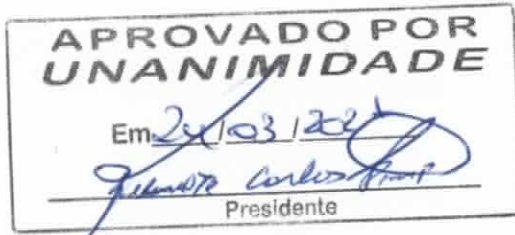 APROVADO POR
UNANIMIDADE
Em /03/
Carlos
Presidente